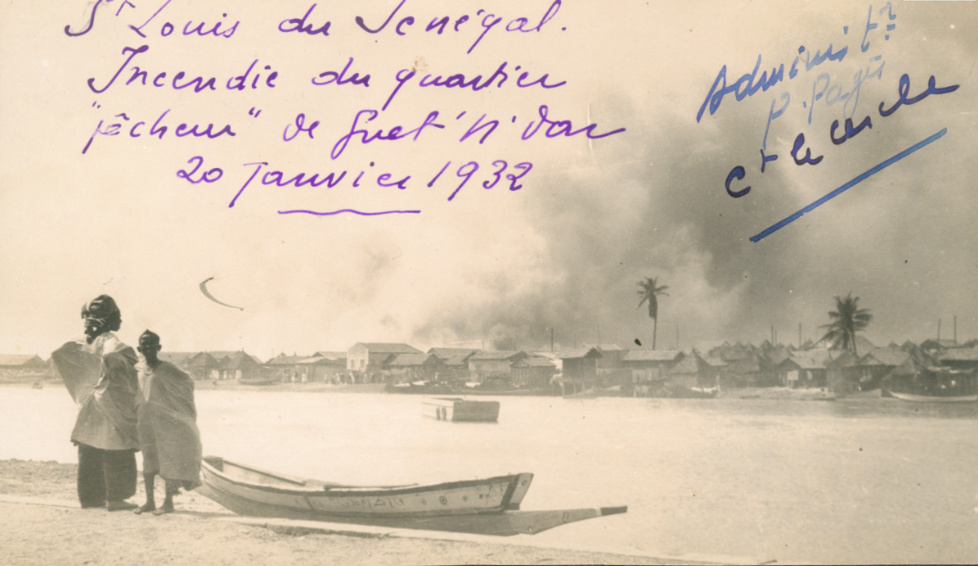 St Louis du Sénégal.
Incendie du quartier
"pêcheur" de Guet'N'dar
20 Janvier 1932
Administr
P. Pagès
Ct le cercle